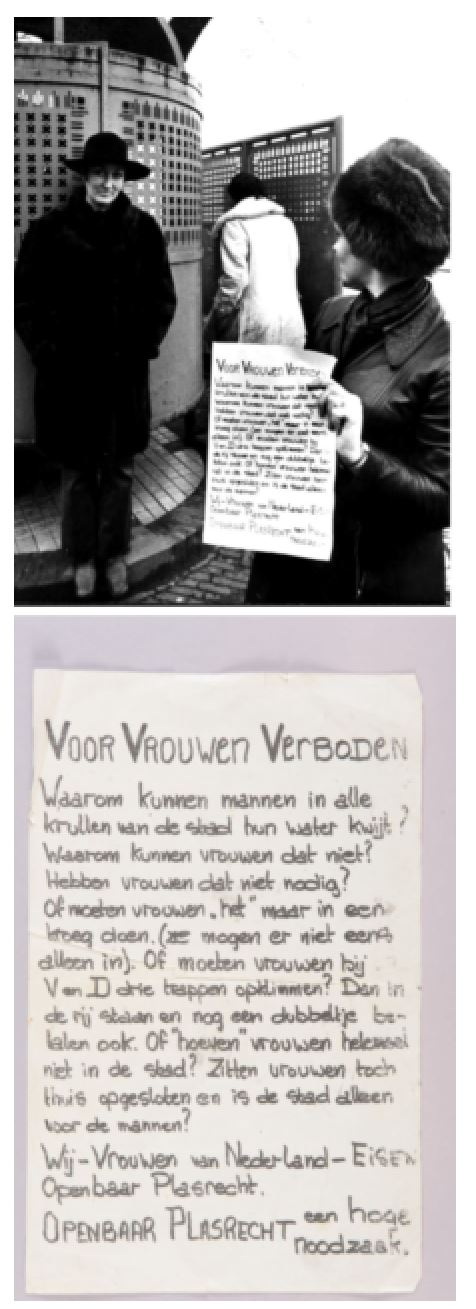 VOOR VROUWEN
Waarom kunnen mannen in
krullen van de stad hun water
Wij-Vrouwen van Nederland-
Openbaar Plasrecht
OPENBAAR PLASRECHT
VOOR VROUWEN VERBODEN
Waarom kunnen mannen in alle
krullen van de stad hun water kwijt?
Waarom kunnen vrouwen dat niet?
Hebben vrouwen dat niet nodig?
Of moeten vrouwen „het" maar in een
kroeg doen. (ze mogen er niet eens
alleen in). Of moeten vrouwen bij
V en D drie trappen opklimmen? Dan in
de rij staan en nog een dubbeltje be-
talen ook. Of "hoeven" vrouwen helemaal
niet in de stad? Zitten vrouwen toch
thuis opgesloten en is de stad alleen
voor de mannen?
Wij-Vrouwen van Nederland-EISEN
Openbaar Plasrecht.
OPENBAAR PLASRECHT een hoge
noodzaak.